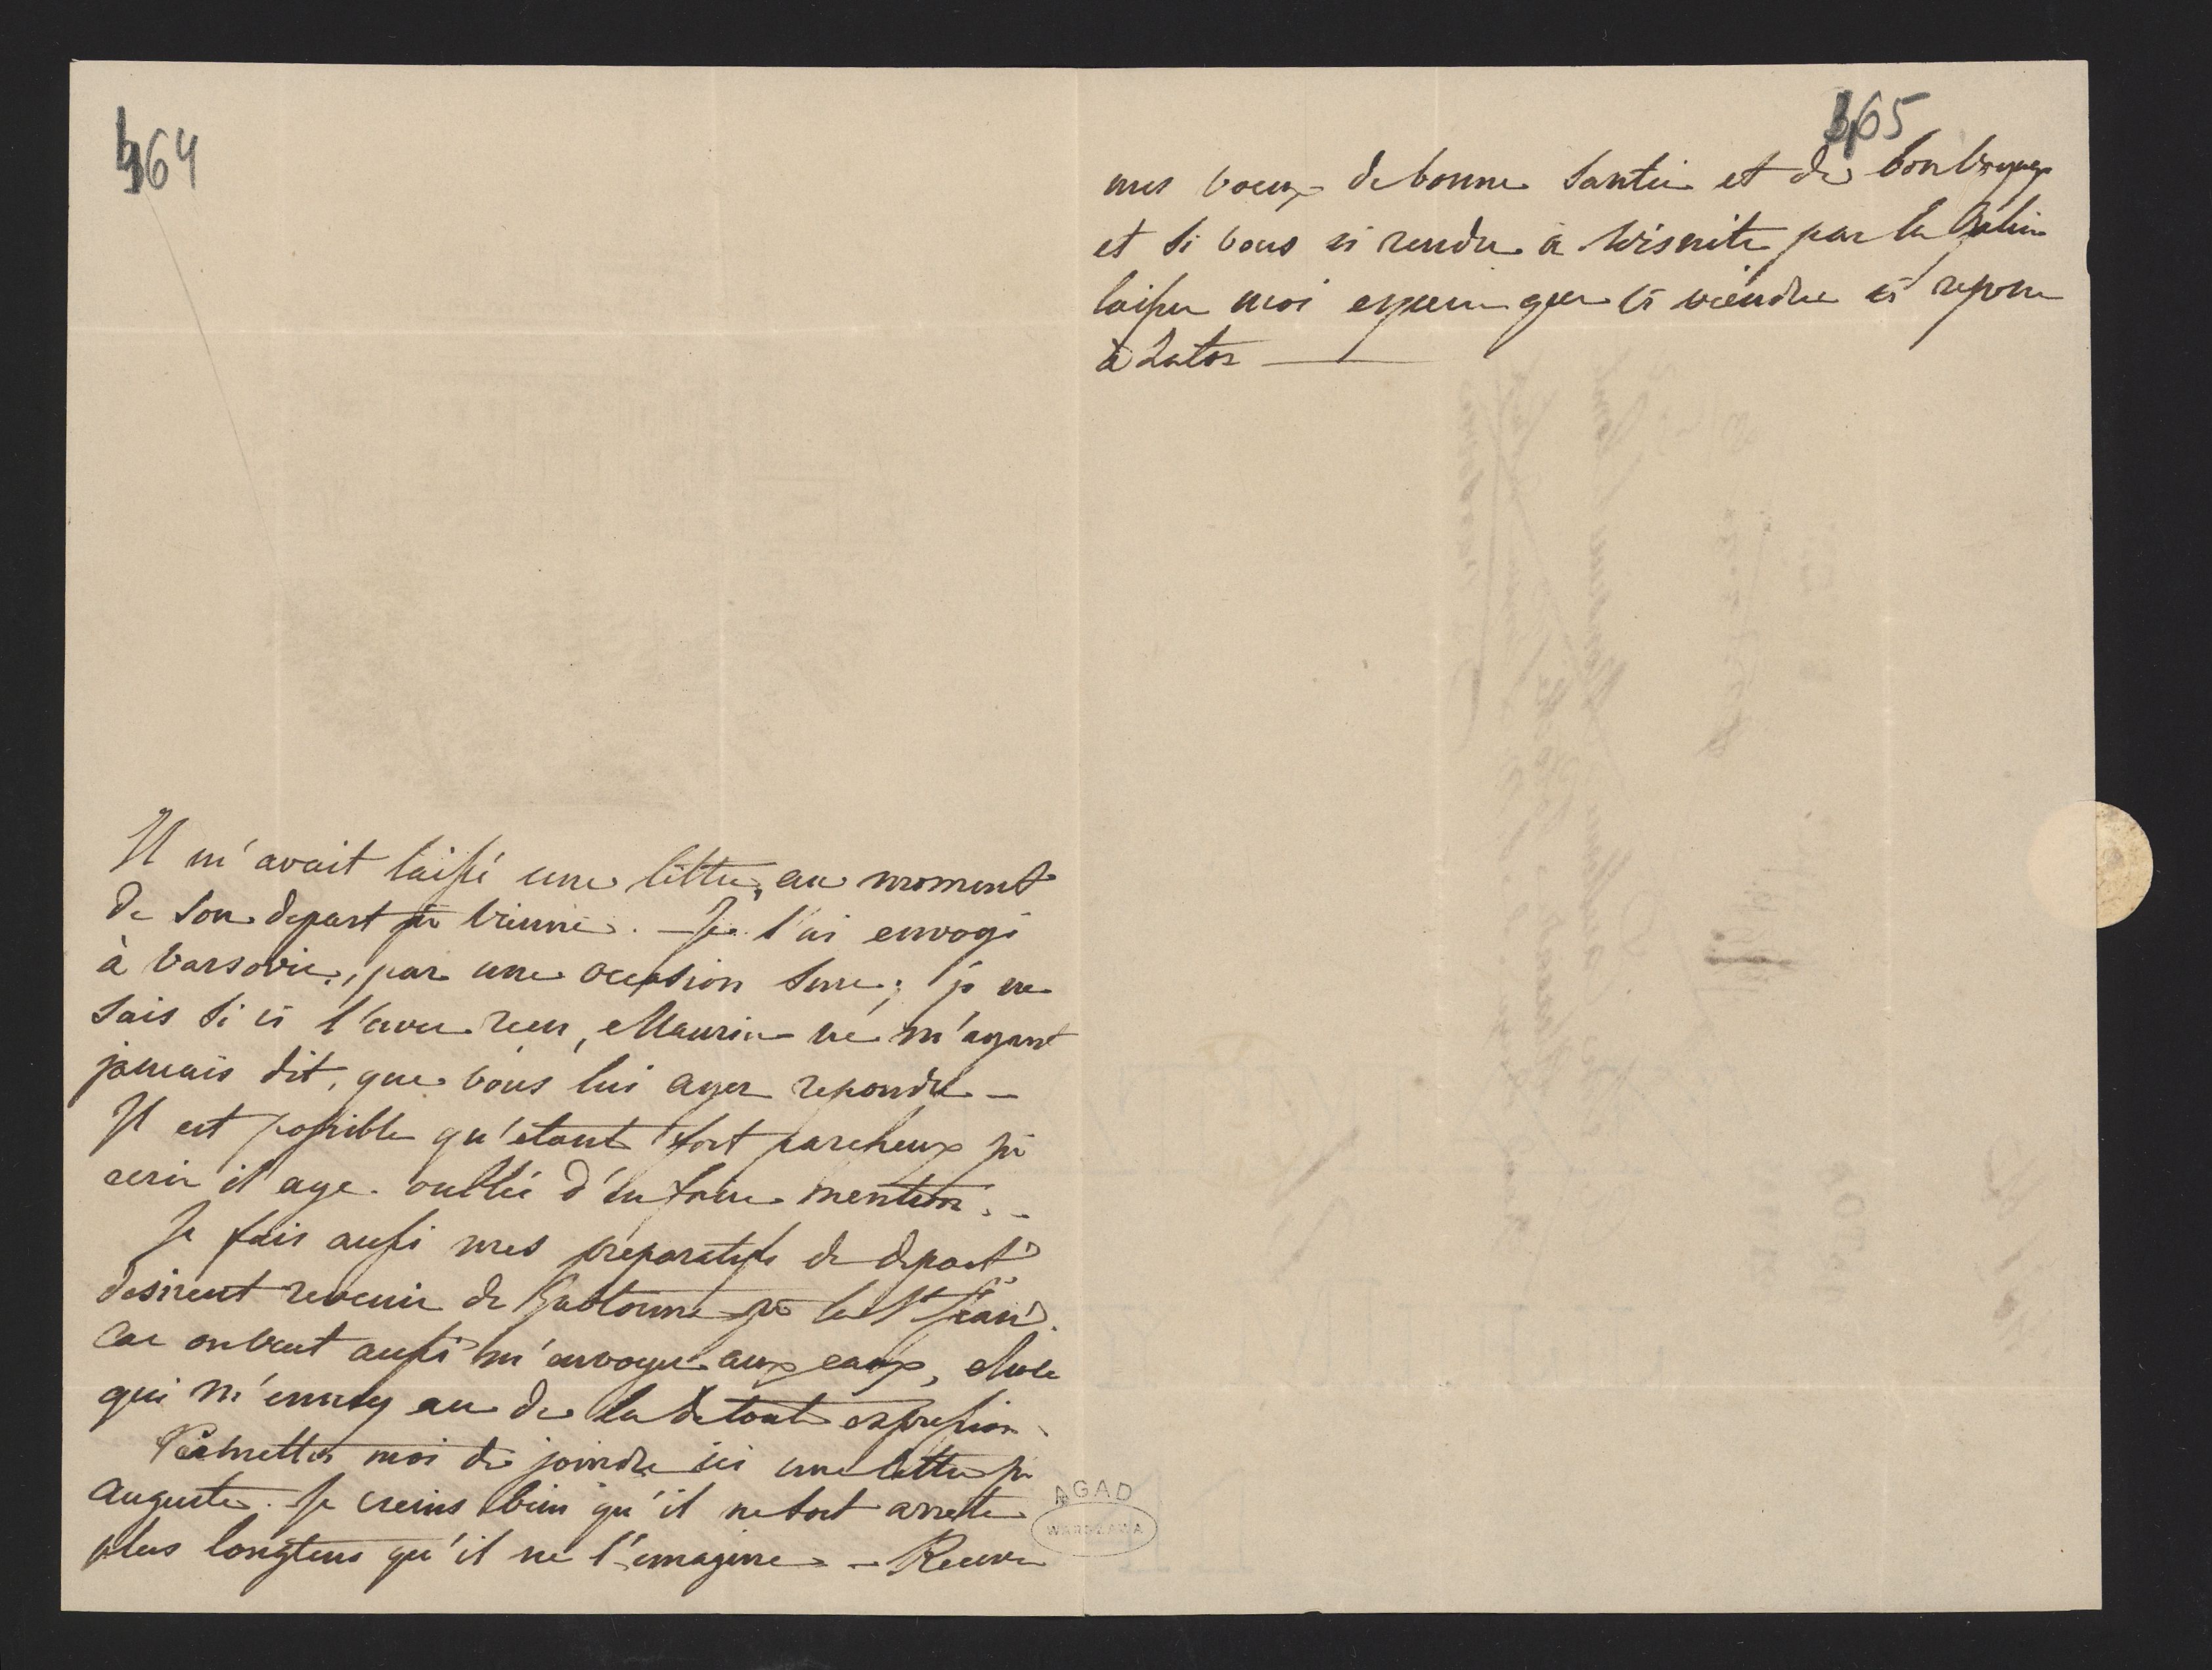 464
Il m'avait laissé une lettre, au moment
de son depart pr Vienne. — Je l'ai envoyé
à Varsovie, par une occasion sure; je ne
sais si Maurice ne m'ayant
jamais dit, que vous lui ayez repondu —
Il est possible qu'etant fort parcheux pr
ecrir il aye oublié d'en faire mention. —
Je fais aussi mes preparatifs de depart
desirent revenir de pr la St Jean.
Car on veut aussi m'envoyer aux eaux, chose
qui m'ennuy au de la de tout expression.
Permettez moi de joindre ici une lettre pr
Auguste. Je creins bien qu'il ne soit arreté
plus longtems qu'il ne l'emagine — Recevez
465
mes voeux de bonne santée et de bon voyage
et si vous rendez à par la
laissez moi esperer que viendra
à
AGAD
WARSZAWA